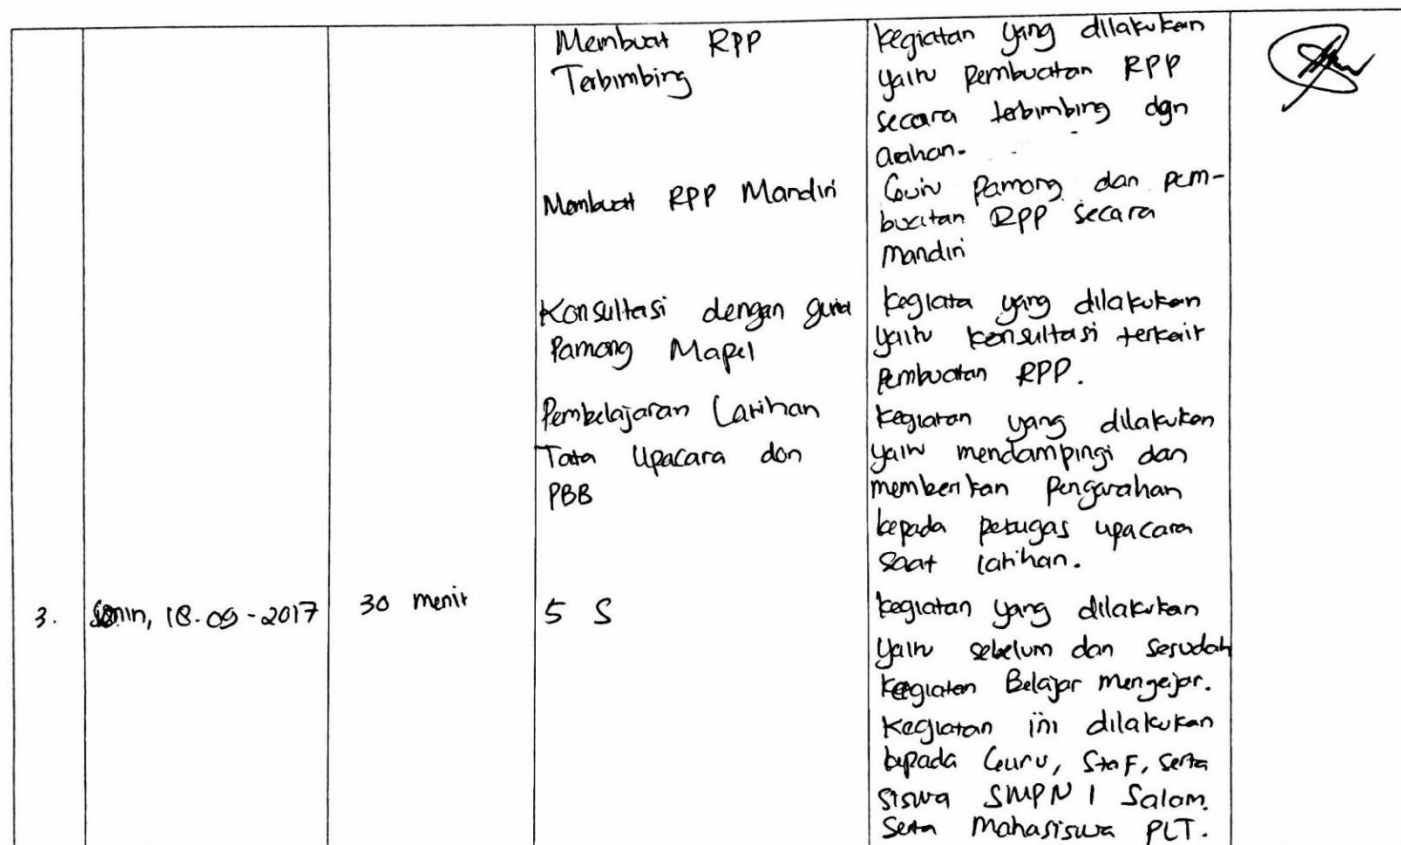 Membuat RPP
Terbimbing
kegiatan yang dilakukan
yaitu Pembuatan RPP
secara terbimbing dgn
arahan.
Membuat RPP Mandiri
Guru Pamong dan pem-
buatan RPP secara
Mandiri
Konsultasi dengan guru
Pamong Mapel
kegiata yang dilakukan
yaitu konsultasi terkait
pembuatan RPP.
Pembelajaran Latihan
Tata Upacara dan
PBB
kegiatan yang dilakukan
yaitu mendampingi dan
memberikan pengarahan
kepada petugas upacara
saat latihan.
3. Senin, 18-09-2017 30 menit 5 S
kegiatan yang dilakukan
yaitu sebelum dan sesudah
kegiatan Belajar mengajar.
Kegiatan ini dilakukan
kepada Guru, Staf, serta
siswa SMPN 1 Salam.
Serta Mahasiswa PLT.